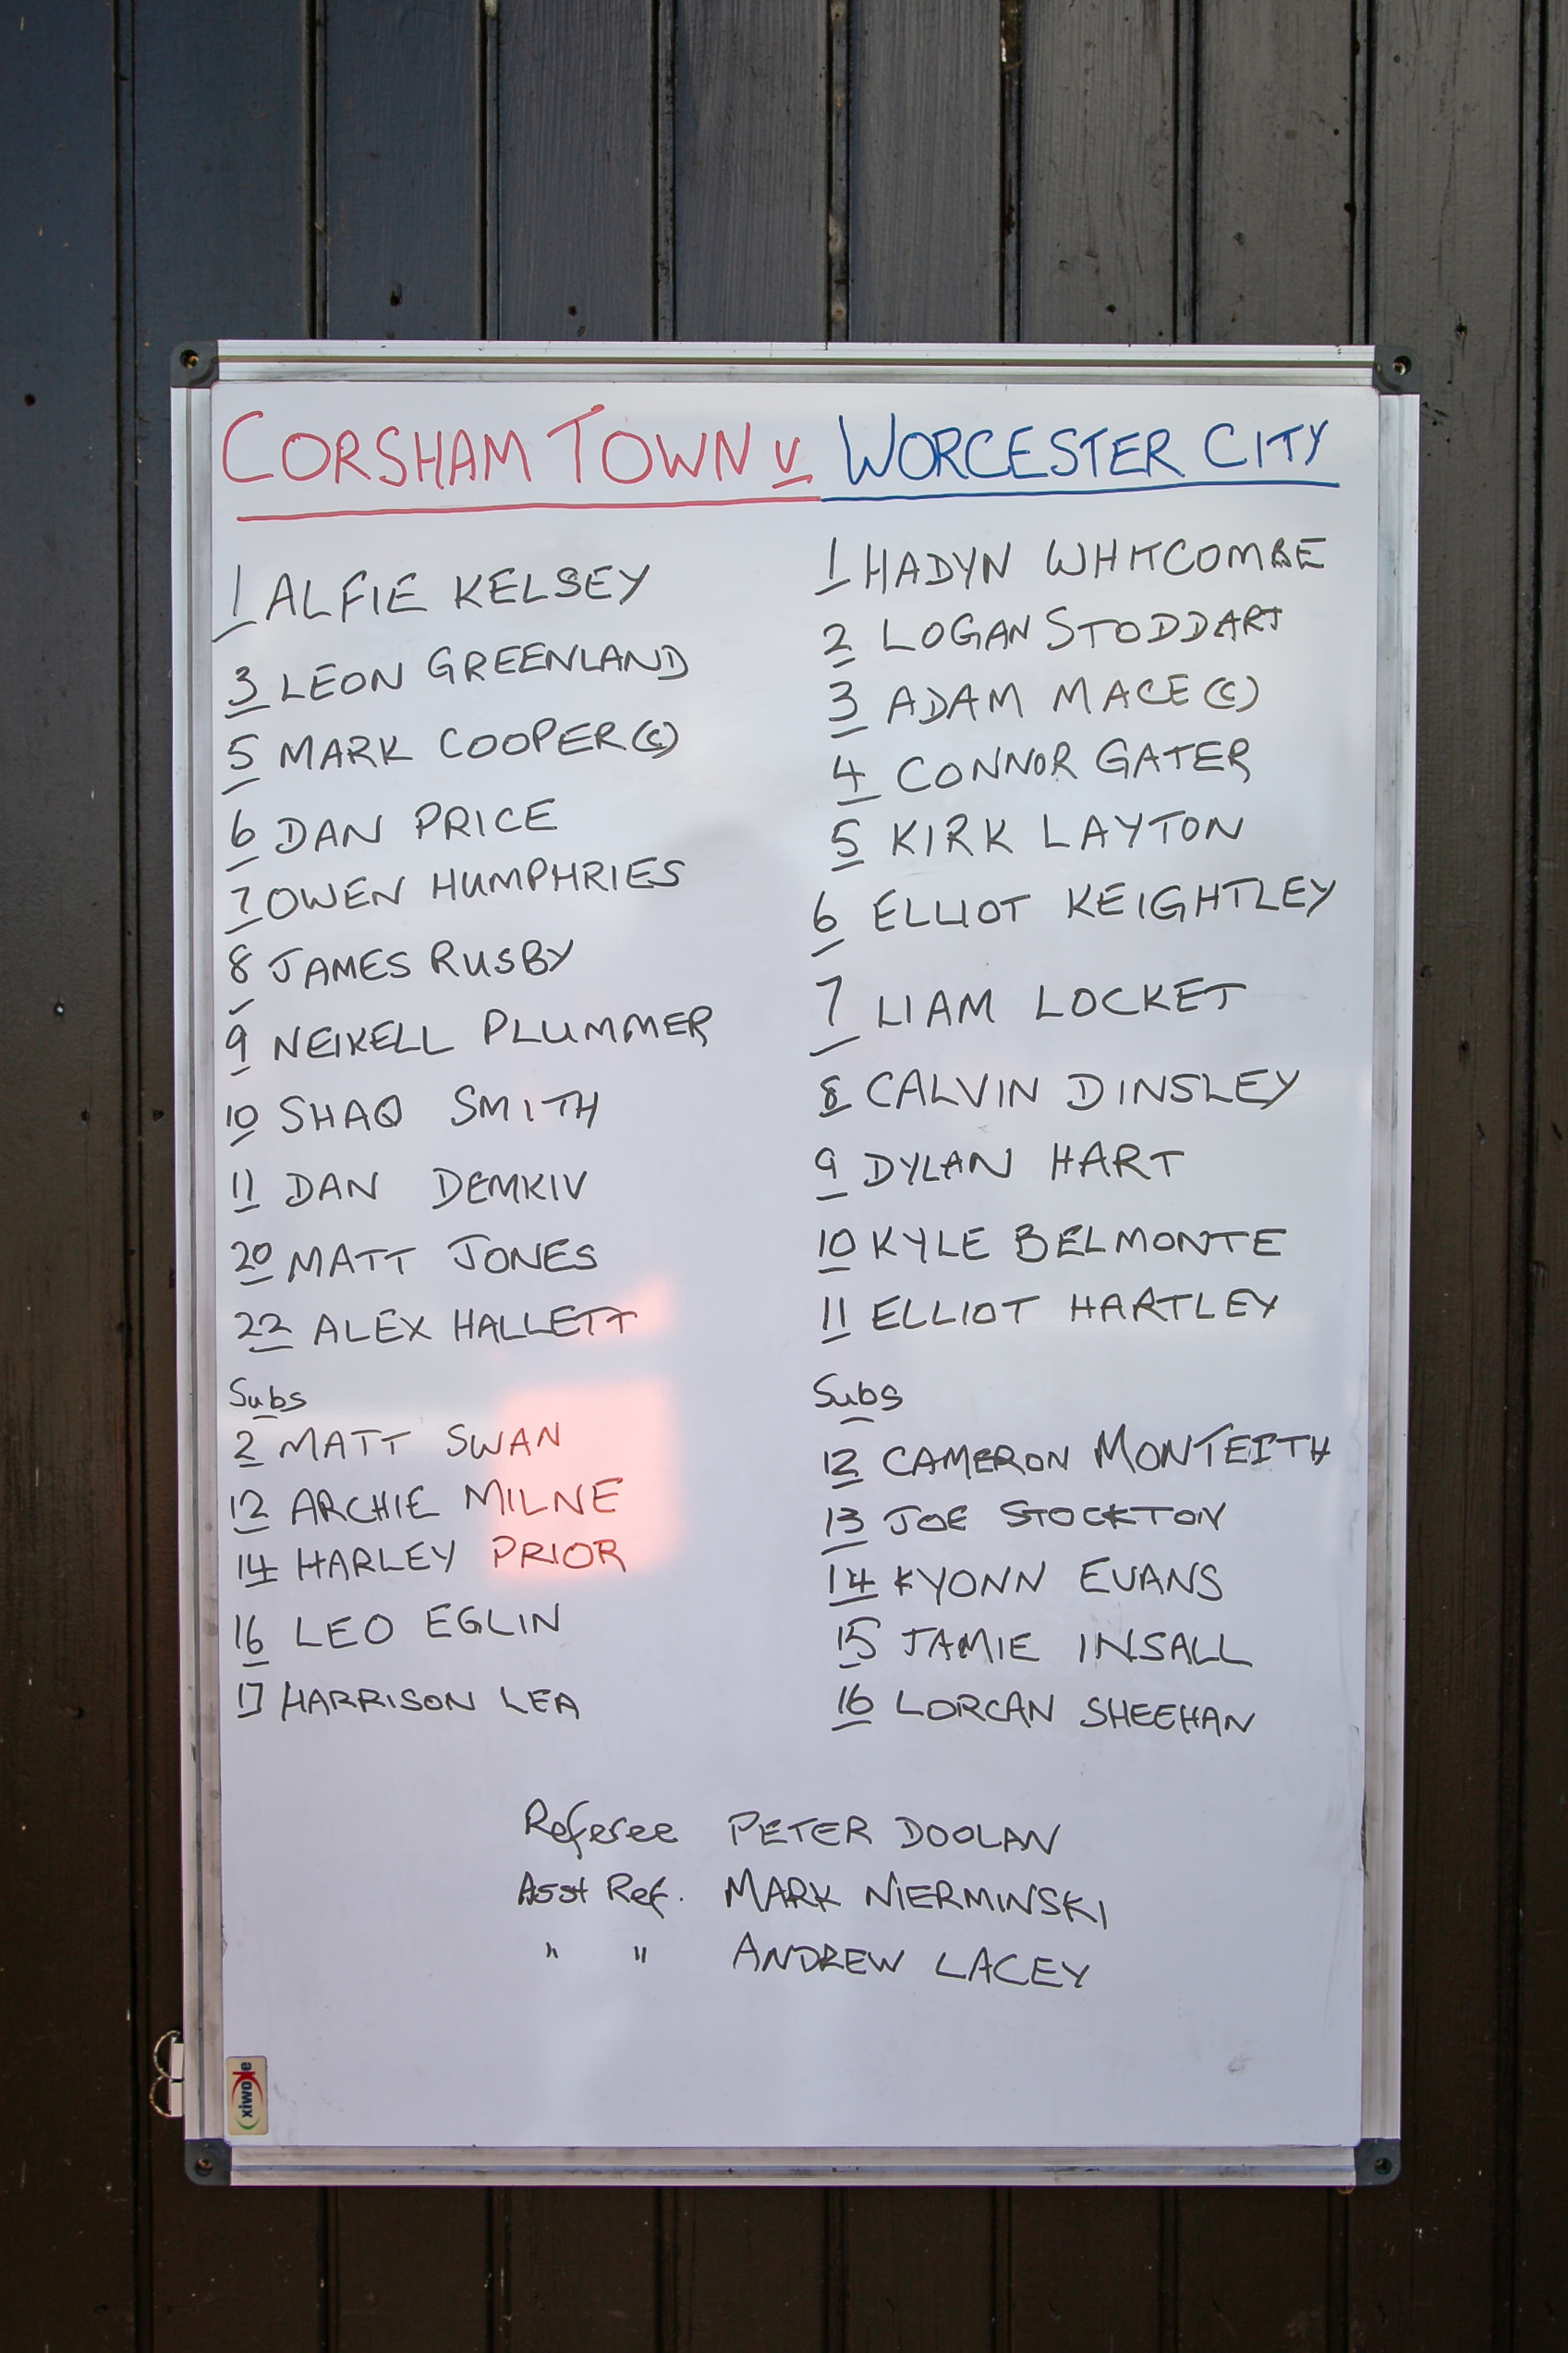 CORSHAM TOWN v WORCESTER CITY
1 ALFIE KELSEY
3 LEON GREENLAND
5 MARK COOPER (C)
6 DAN PRICE
7 OWEN HUMPHRIES
8 JAMES RUSBY
9 NEIKELL PLUMMER
10 SHAQ SMITH
11 DAN DEMKIV
20 MATT JONES
22 ALEX HALLETT
Subs
2 MATT SWAN
12 ARCHIE MILNE
14 HARLEY PRIOR
16 LEO EGLIN
17 HARRISON LEA
1 HADYN WHITCOMBE
2 LOGAN STODDART
3 ADAM MACE (C)
4 CONNOR GATER
5 KIRK LAYTON
6 ELLIOT KEIGHTLEY
7 LIAM LOCKET
8 CALVIN DINSLEY
9 DYLAN HART
10 KYLE BELMONTE
11 ELLIOT HARTLEY
Subs
12 CAMERON MONTEITH
13 JOE STOCKTON
14 KYONN EVANS
15 JAMIE INSALL
16 LORCAN SHEEHAN
Referee PETER DOOLAN
Asst Ref. MARK NIERMINSKI
" " ANDREW LACEY